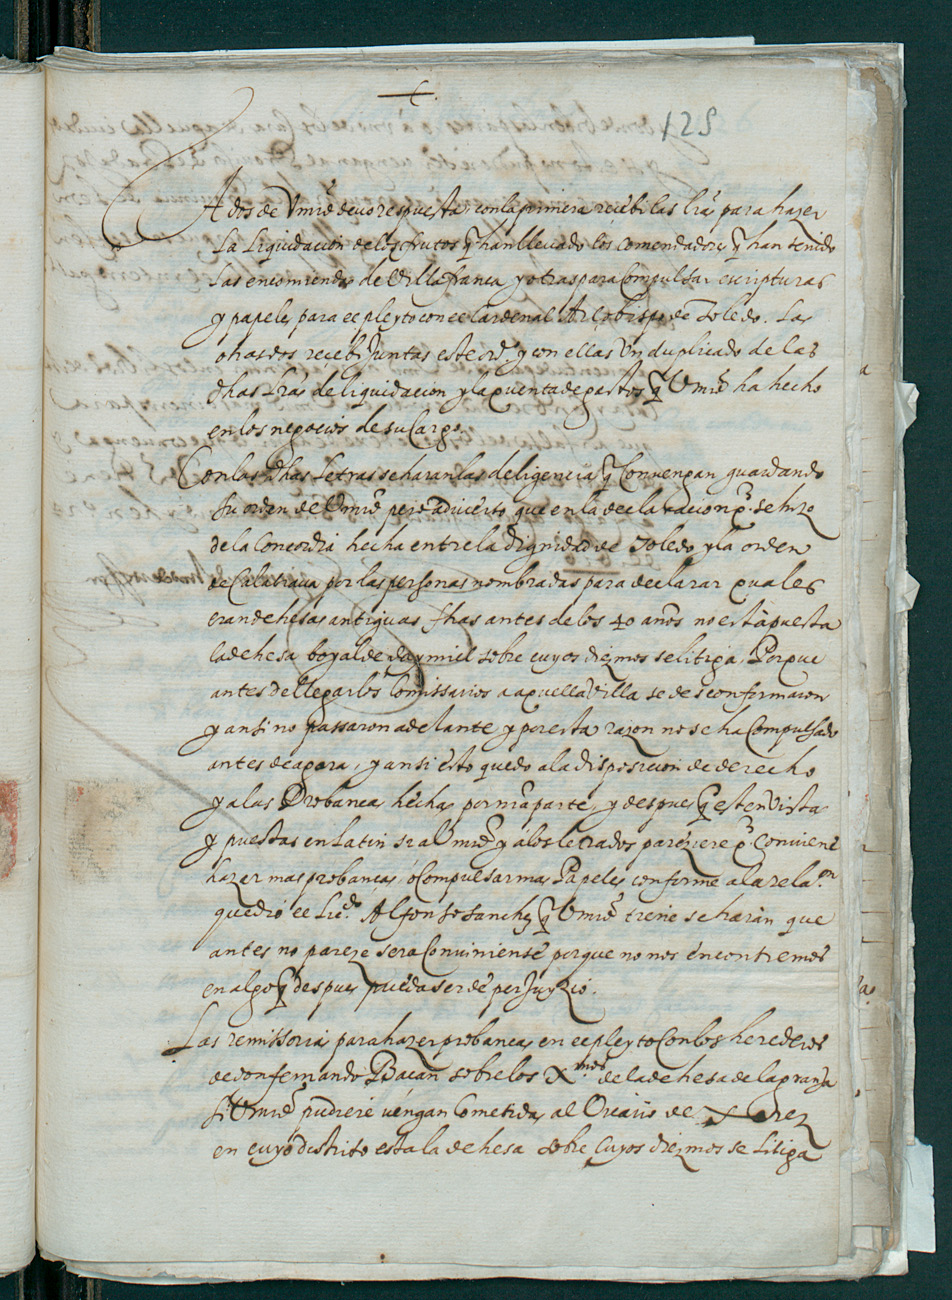 +
125
A dos de Vmrd devo respuesta, con la primera recebi las lrãs para hazer
La Liquidacion de los frutos q̃ han llevado los comendadores q̃ han tenido
Las encomiendas de Villafranca y otras para Compulsar escripturas
y papeles para ee pleyto con ee Cardenal Arçobispo de Toledo. Las
otras dos recebi Juntas este ord.º y con ellas Un duplicado de las
dhas Lras de liquidacion y la quenta de gastos q̃ Vmrd ha hecho
en los negocios de su Cargo.
Con las dhas Letras se haran las deligencias q̃ Convengan guardando
su orden de Vmrd pero advierto que en la declaracion q̃ se hizo
de la Concordia hecha entre la dignidad de Toledo y la orden
de Calatrava por las personas nombradas para declarar quales
eran dehesas antiguas fhas antes de los 40 años no està puesta
la dehesa boyal de daymiel sobre cuyos diezmos se litiga. Porque
antes de llegar los Comissarios a aquella Villa se desconformaron
y ansi no passaron adelante y por esta razon no se ha Compulsado
antes de agora, y ansi esto quedo a la disposicion de derecho
y a las Probanças hechas por nr̃a parte, y despues q̃ esten Vistas
y puestas en Latin si a Vmrd y a los letrados pareziere q̃ Conviene
hazer mas probanças, ó Compulsar mas Papeles conforme a la rela.on
que dió ee Licdo. Alfonso sanchez q̃ Vmrd tiene se harán que
antes no pareze sera Conviniente porque no nos encontremos
en algo q̃ despues pueda ser de perJuyzio.
Las remissorias para hazer probanças en ee pleyto Con los herederos
de don fernando Baçan sobre los Xmos de la dehesa de la granja
si Vmrd pudiere vengan Cometidas al Vicario de Xerez
en cuyo distrito esta la dehesa sobre Cuyos diezmos se Litiga